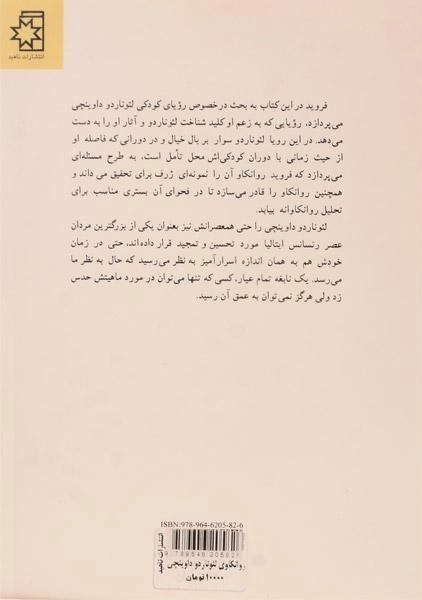 انتشارات ناهید
فروید در این کتاب به بحث درخصوص رؤیای کودکی لئوناردو داوینچی
می‌پردازد، رؤیایی که به زعم او کلید شناخت لئوناردو و آثار او را به دست
می‌دهد. در این رویا لئوناردو سوار بر بال خیال و در دورانی که فاصله او
از حیث زمانی با دوران کودکی‌اش محل تأمل است، به طرح مسئله‌ای
می‌پردازد که فروید روانکاو آن را نمونه‌ای ژرف برای تحقیق می داند و
همچنین روانکاو را قادر می‌سازد تا در فحوای آن بستری مناسب برای
تحلیل روانکاوانه بیابد.
لئوناردو داوینچی را حتی همعصرانش نیز بعنوان یکی از بزرگترین مردان
عصر رنسانس ایتالیا مورد تحسین و تمجید قرار داده‌اند، حتی در زمان
خودش هم به همان اندازه اسرارآمیز به نظر می‌رسید که حال به نظر ما
می‌رسد. یک نابغه تمام عیار، کسی که تنها می‌توان در مورد ماهیتش حدس
زد ولی هرگز نمی‌توان به عمق آن رسید.
ISBN:978-964-6205-82-6
9789646205826
انتشارات ناهید
روانکاوی لئوناردو داوینچی
۱۰۰۰۰ تومان